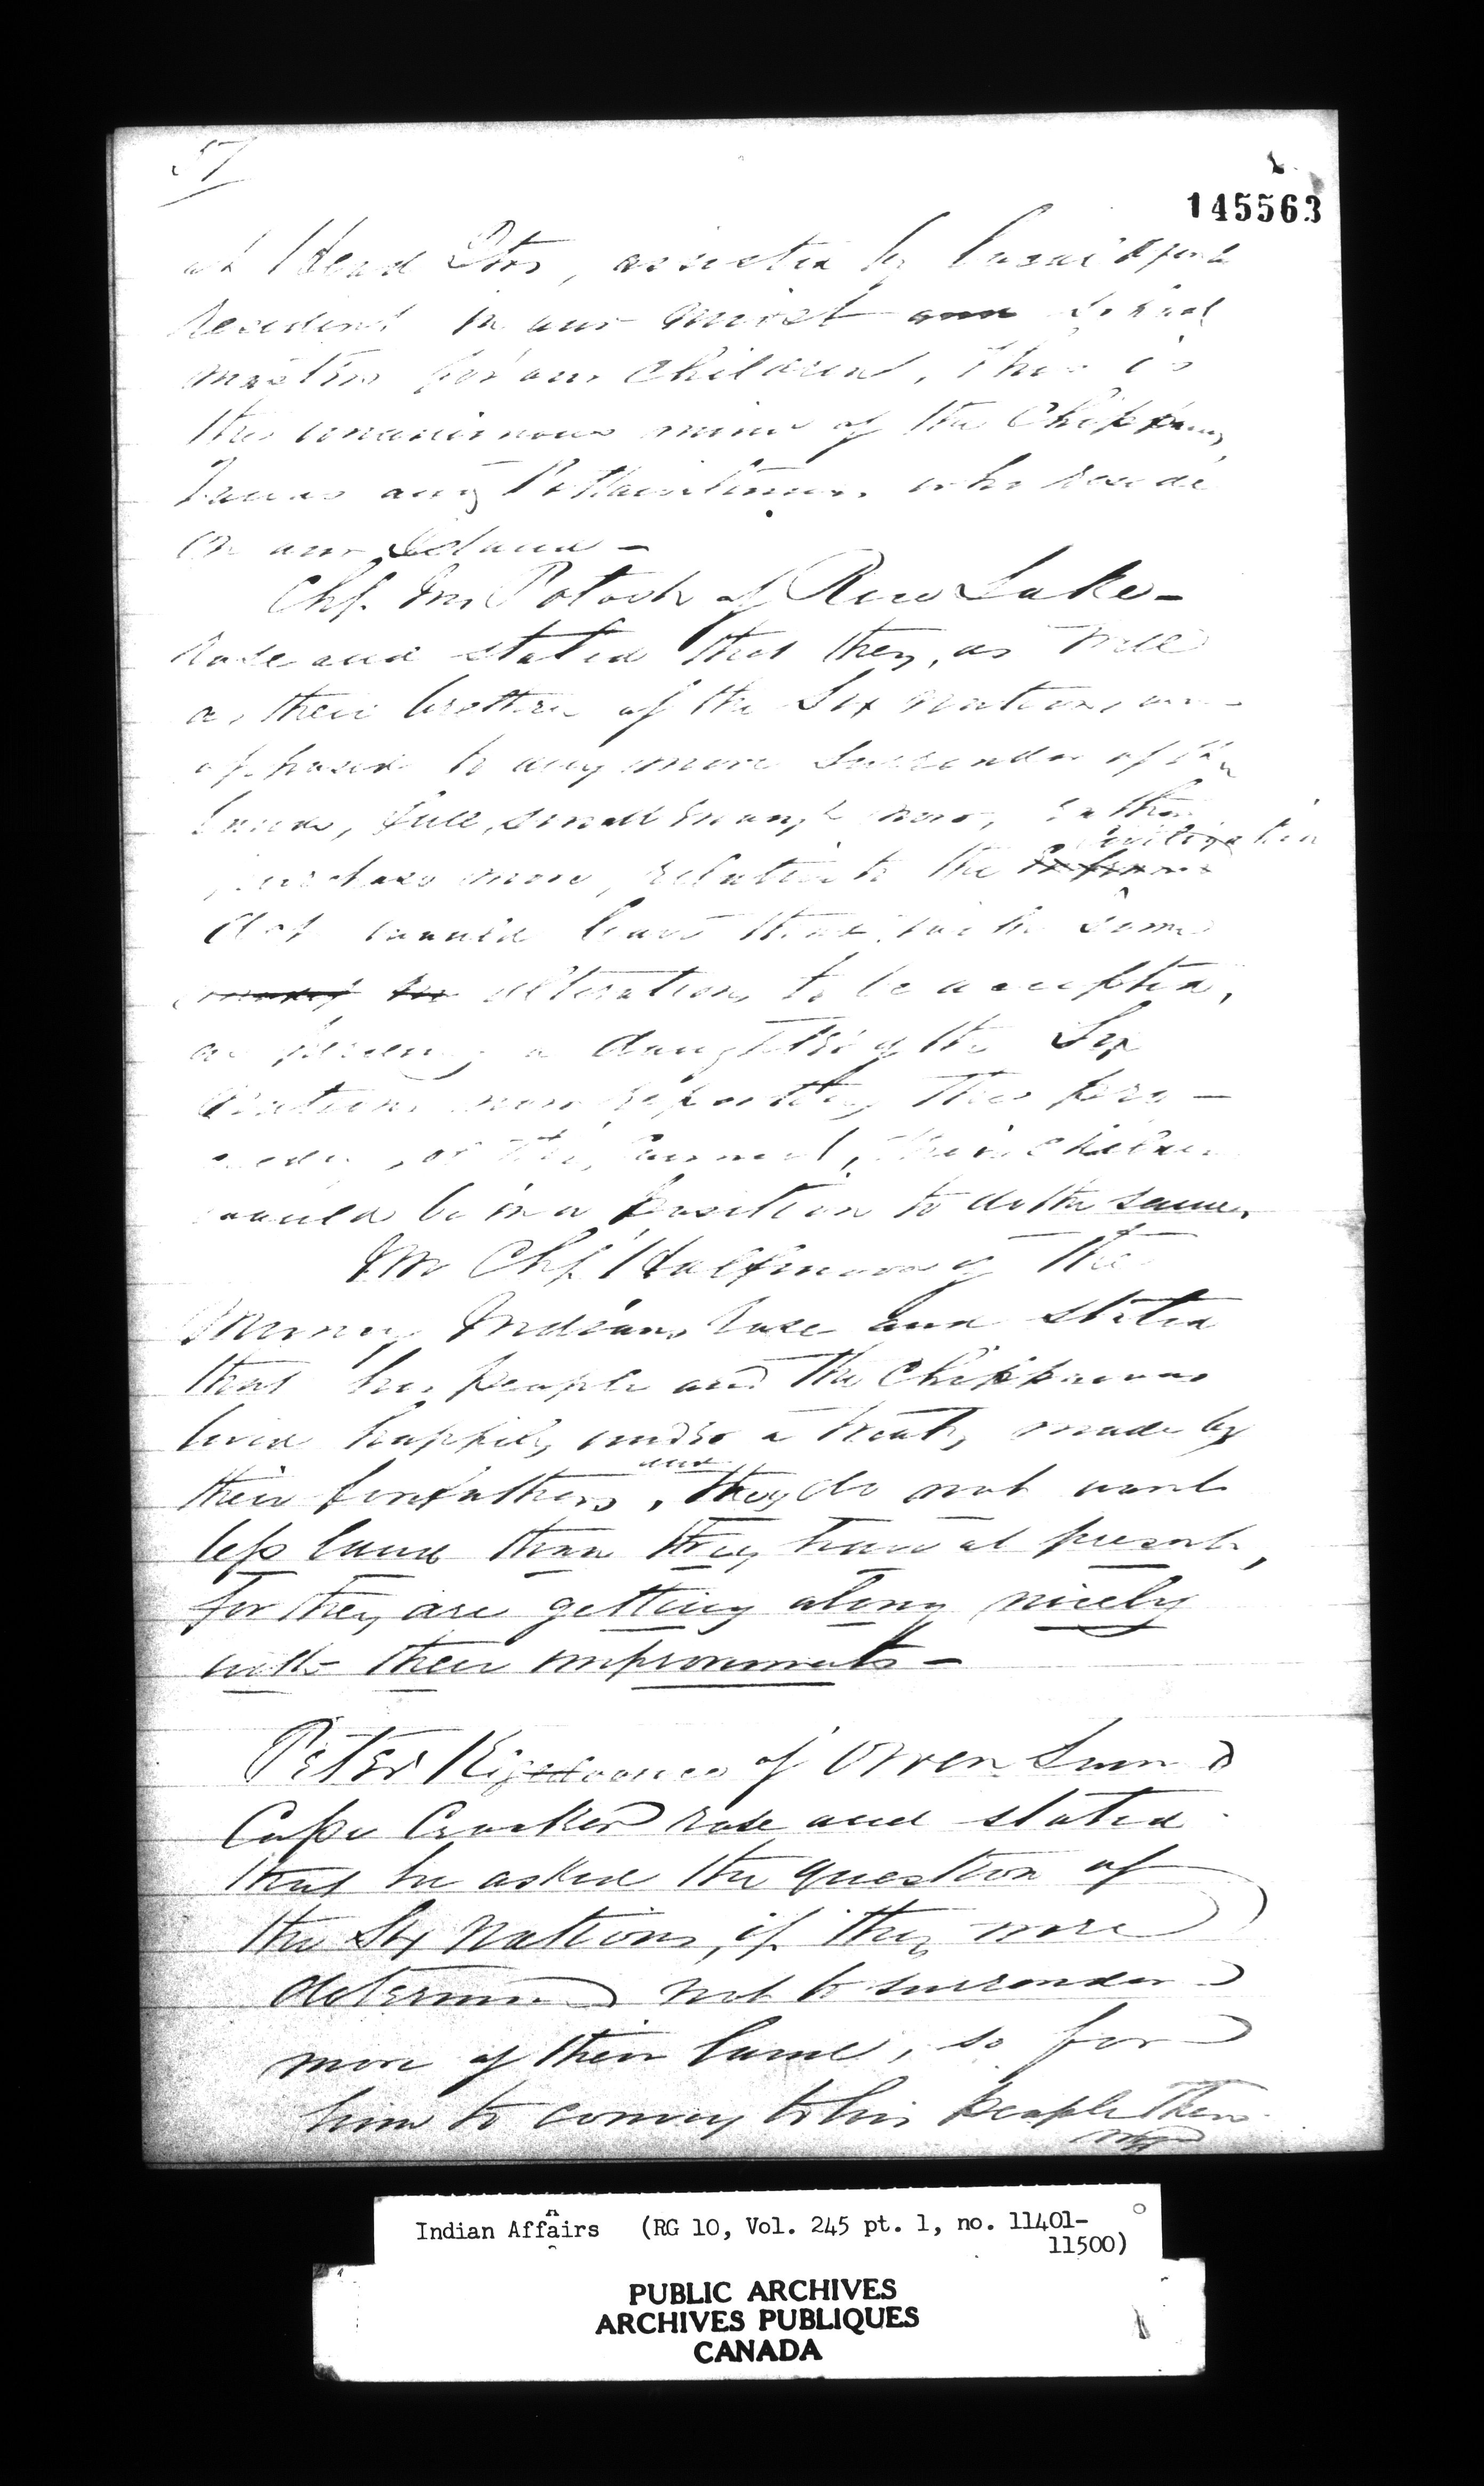 57
145563
at Head Qtrs, assisted by Local Agents
resident in our midst and School
masters for our Children, This is
the unanimous mind of the Chippewas
Tawas and Pottawatimies who reside
on our Island -
Chf. Mr Potash of Rice Lake -
rose and stated that they, as well
as their brothers of the Six Nations, are
opposed to any more Surrender of their
lands, still, small enough now, rather
purchase more, relative to the Civilization
Act would leave that, with some
alterations to be accepted,
as seeing a daughter of the Six
Nations now reporting the pro-
ceedings of this Council, their children
would be in a position to do the same.
Mr Chf Halfmoon of the
Muncey Indians rose and stated
that his people and the Chippewas
lived happily under a treaty made by
their forefathers, and they do not want
less land than they have at present,
for they are getting along nicely
with their improvments -
Peter of Owen Sound
Cape Croaker rose and stated
that he asked the question of
the Six Nations, if they were
determined not to surrender
more of their land, so for
him to convey to his people there
Indian Affairs (RG 10, Vol. 245 pt. 1, no. 11401-
11500)
PUBLIC ARCHIVES
ARCHIVES PUBLIQUES
CANADA